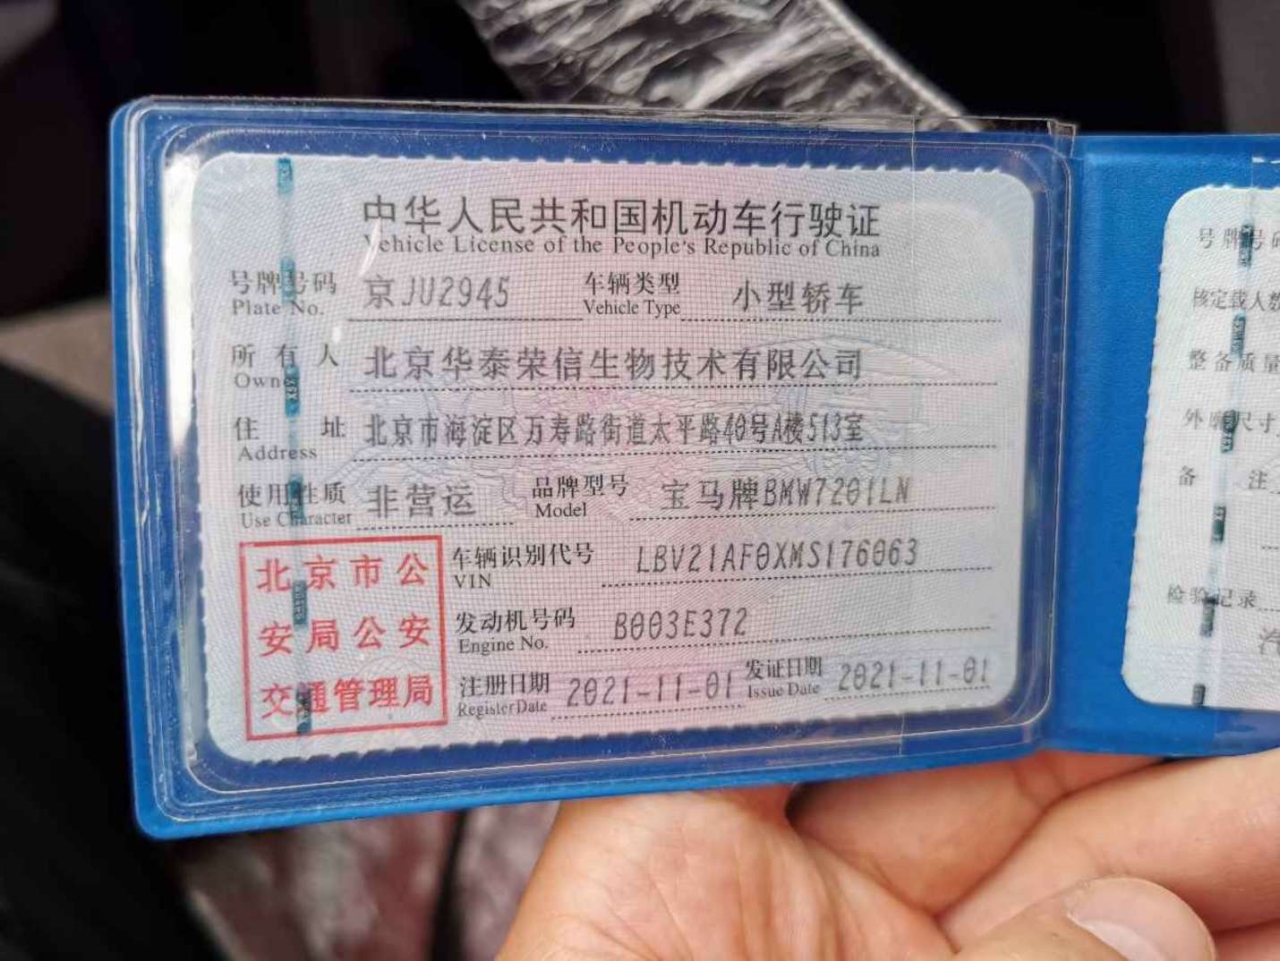 中华人民共和国机动车行驶证
Vehicle License of the People's Republic of China
号牌号码 京JU2945 车辆类型 小型轿车
Plate No. Vehicle Type
所有人 北京华泰荣信生物技术有限公司
Owner
住址 北京市海淀区万寿路街道太平路40号A楼513室
Address
使用性质 非营运 品牌型号 宝马牌BMW7201LN
Use Character Model
北京市公
安局公安
交通管理局
车辆识别代号 LBV21AF0XMS176063
VIN
发动机号码 B003E372
Engine No.
注册日期 2021-11-01 发证日期 2021-11-01
Register Date Issue Date
号牌号码
核定载人数
整备质量
外廓尺寸
备注
检验记录